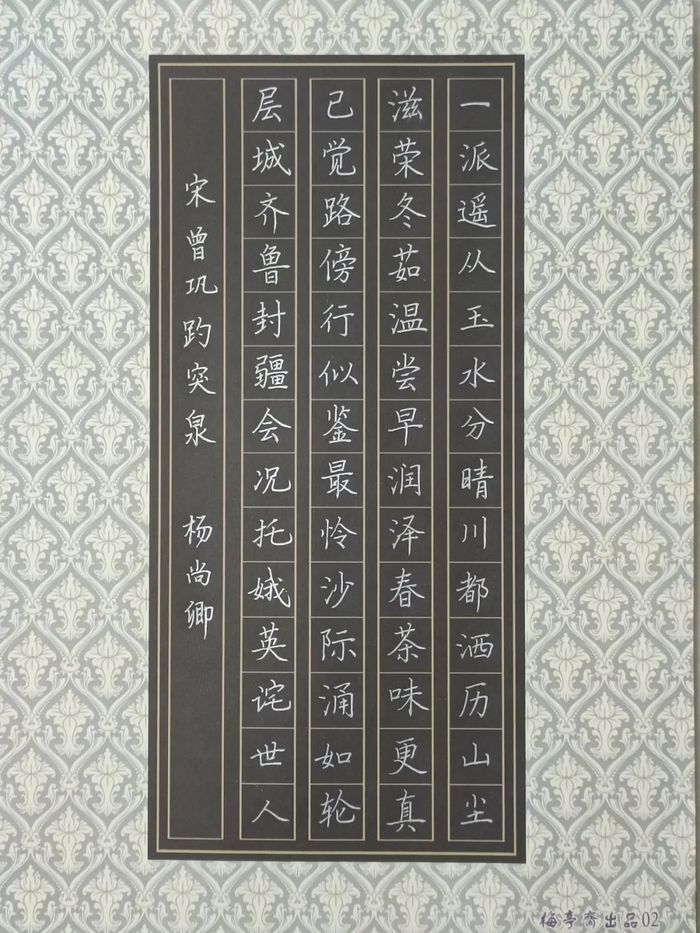 一派遥从玉水分晴川都洒历山尘
滋荣冬茹温尝早润泽春茶味更真
已觉路傍行似鉴最怜沙际涌如轮
层城齐鲁封疆会况托娥英诧世人
宋曾巩趵突泉 杨尚卿
梅亭斋出品02